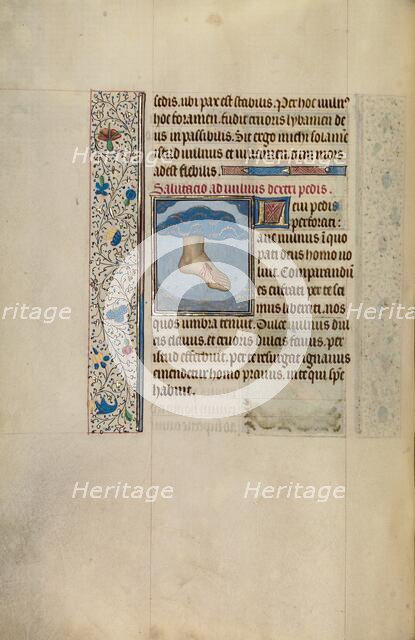 sedis, ubi pax est stabilis. Per hoc uulnus
hoc foramen. fudit cruoris lybamen de
us in passibilis. Sit ergo michi
istud uulnus et cum mors
adest flebilis.
Salutacio ad uulnus dextri pedis.
pedis
perforati:
ane uulnus in quo
pati deus homo uo
luit. Comparandu
es curati per te su
mus liberati. nos
quos umbra tenuit. Dulce uulnus dul
cis clauus. et cruoris dulcis fauus. per
per te resurgat ignauus
emendetur homo prauus. uite qui spem
habuit.
Heritage
Heritage
Heritage
Heritage
Heritage
Heritage